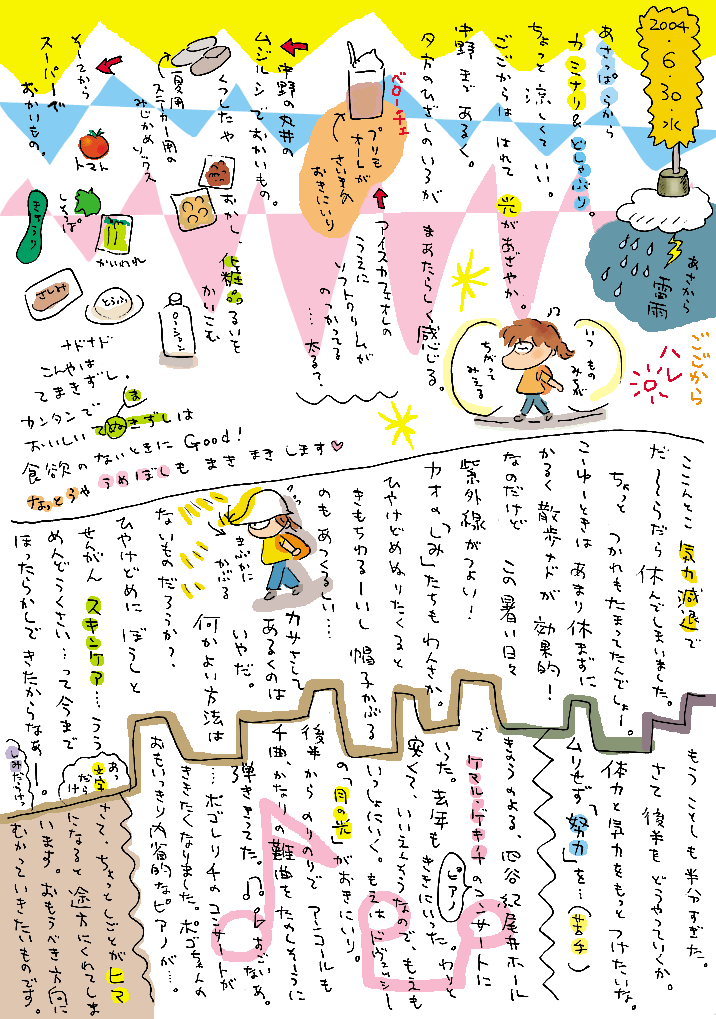 2004.6.30.水
あさから
雷雨
ごごから
ハレ
あさっぱらから
カミナリ&どしゃぶり。
ちょっと涼しくていい。
ごごからは はれて 光があざやか。
中野まであるく。
夕方のひざしのいろが
まあたらしく感じる。
いつもの
みちが
ちがって
みえる
ベローチェ
プリモ
オーレが
さいきん
おきにいり
アイスカフェオレの
うえに
ソフトクリームが
のっかってる
…太る?
中野の丸井の
ムジルシでおかいもの。
くつしたや
おかし、化粧品るいを
かいこむ
夏用
スニーカー用の
みじかめソックス
ローション
そしてから
スーパーで
おかいもの。
トマト
しそっぱ
きゅうり
かいわれ
さしみ
とうふ
ナドナド
こんやは
てまきずし。
カンタンで
おいしいてぬきずしは
ま
食欲のないときにGood!
なっとうやうめぼしもまきまきします♡
ここんとこ 気力減退で
だ〜〜らだら休んでしまいました。
ちょっと つかれもたまってたんでしょー。
こーゆーときは あまり休まずに
かるく散歩ナドが 効果的!
なのだけど この暑い日々
紫外線がつよい!
カオの「しみ」たちもわんさか。
ひやけどめぬりたくると
きもちわるーいし 帽子かぶる
のもあつくるしい…
まぶかに
かぶる
カサさして
あるくのは
いやだ。
何かよい方法は
ないものだろうか?
ひやけどめに ぼうしと
せんがん スキンケア…うう
めんどうくさい…って今まで
ほったらかしできたからなぁー。
あっ
だらけ
しみだらけっ
もう ことしも半分すぎた。
さて後半をどうやっていくか。
体力と気力をもっとつけたいな。
ムリせず「努力」を…(苦手)
きのうのよる、四谷紀尾井ホール
でケマル・ゲキチのコンサートに
いった。去年もききにいった。わりと
ピアノ
安くて、いいえんそうなので、もえも
いっしょにいく。もえはドヴュッシー
の「月の光」がおきにいり。
後半からのりのりで アンコールも
千曲、かなりの難曲をたのしそうに
弾ききってた。♫♪すごいなぁ。
…ポゴレリチのコンサートが
ききたくなりました。ポゴちゃんの
おもいっきり内省的なピアノが…。
さて、ちょっとしごとがヒマ
になると途方にくれてしま
います。おもうべき方向に
むかっていきたいものです。